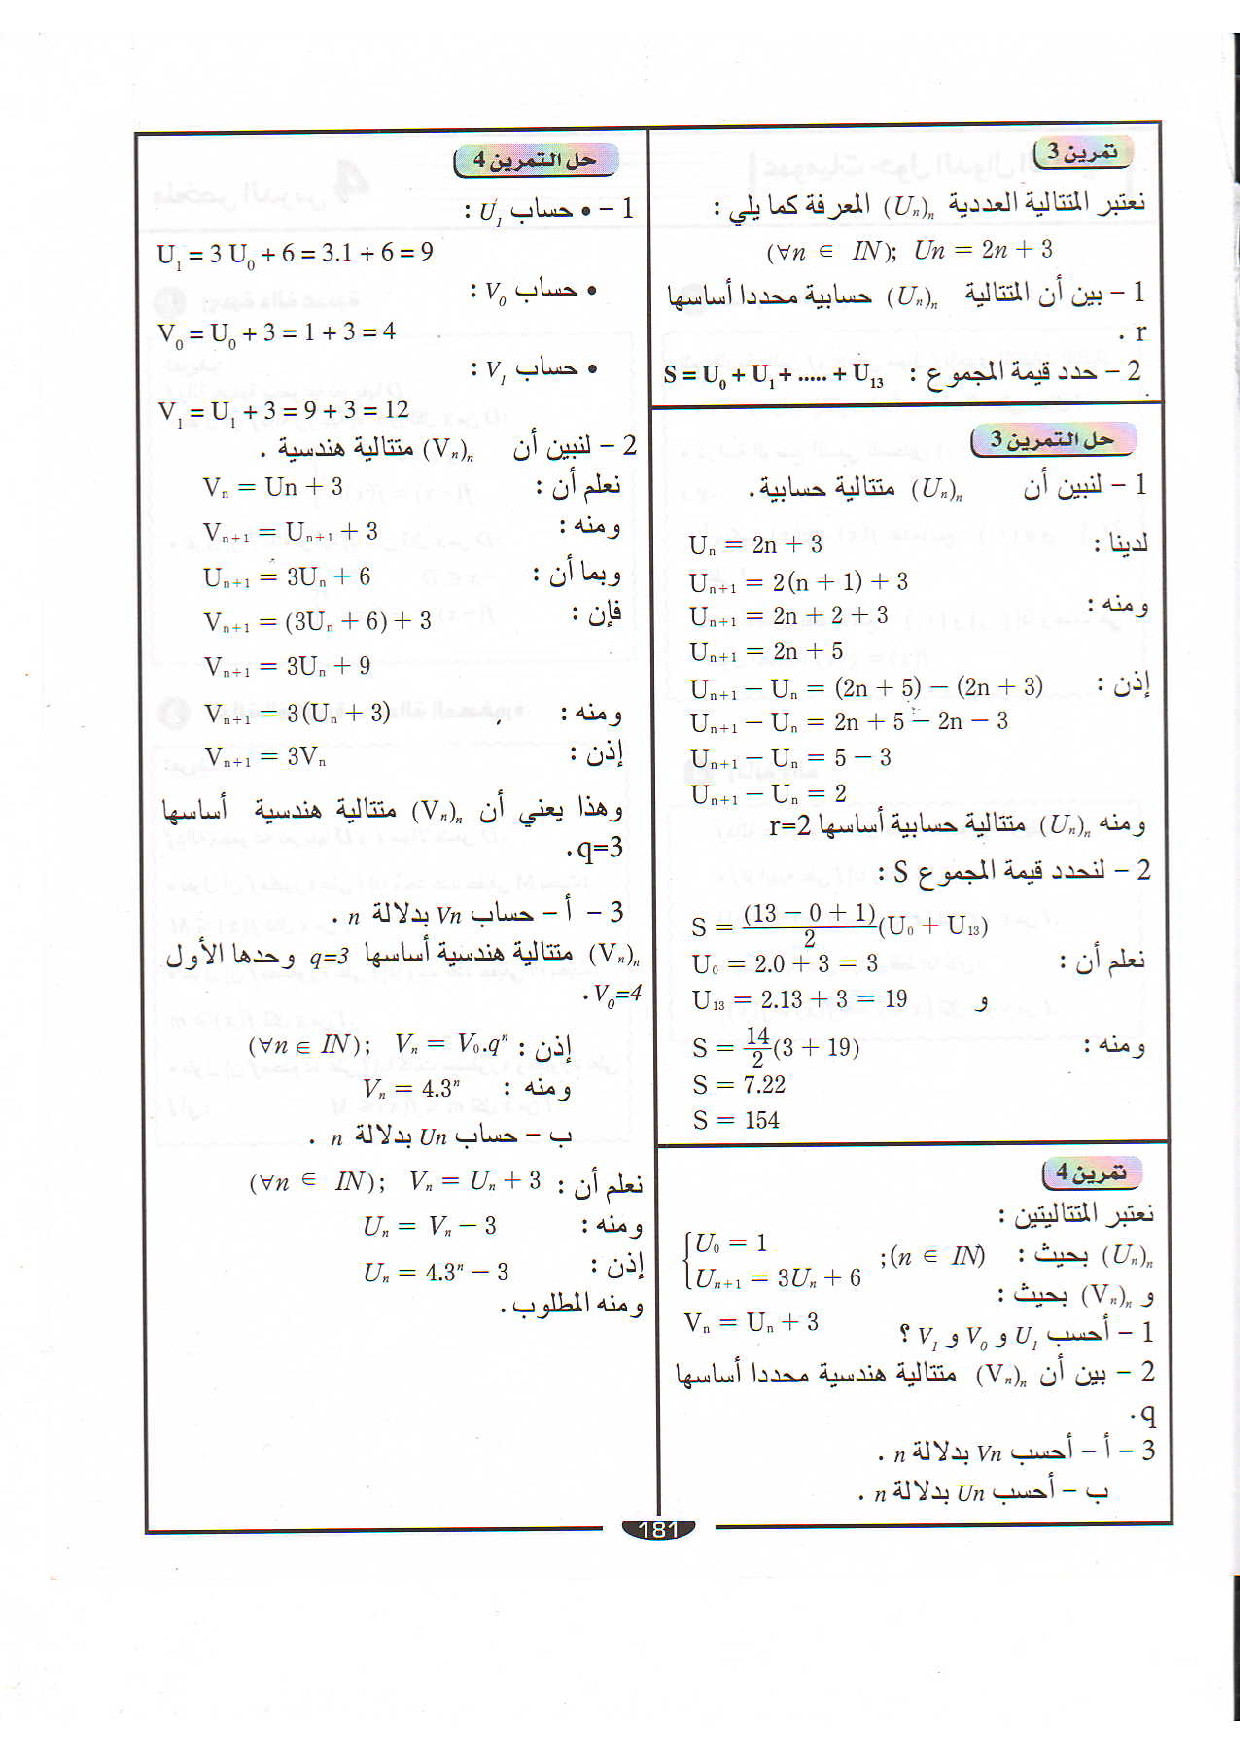 تمرين 3
نعتبر المتتالية العددية (Uₙ)ₙ المعرفة كما يلي :
(∀n ∈ IN); Un = 2n + 3
1 – بين أن المتتالية (Uₙ)ₙ حسابية محددا أساسها
r .
2 – حدد قيمة المجموع : S = U₀ + U₁ + ..... + U₁₃
حل التمرين 3
1 – لنبين أن (Uₙ)ₙ متتالية حسابية.
لدينا : Uₙ = 2n + 3
Uₙ₊₁ = 2(n + 1) + 3
ومنه : Uₙ₊₁ = 2n + 2 + 3
Uₙ₊₁ = 2n + 5
إذن : Uₙ₊₁ − Uₙ = (2n + 5) − (2n + 3)
Uₙ₊₁ − Uₙ = 2n + 5 − 2n − 3
Uₙ₊₁ − Uₙ = 5 − 3
Uₙ₊₁ − Uₙ = 2
ومنه (Uₙ)ₙ متتالية حسابية أساسها r=2
2 – لنحدد قيمة المجموع S :
S = (13 − 0 + 1)/2 (U₀ + U₁₃)
نعلم أن : U₀ = 2.0 + 3 = 3
و U₁₃ = 2.13 + 3 = 19
ومنه : S = 14/2 (3 + 19)
S = 7.22
S = 154
تمرين 4
نعتبر المتتاليتين :
(Uₙ)ₙ بحيث : (n ∈ IN); { U₀ = 1
Uₙ₊₁ = 3Uₙ + 6
و (Vₙ)ₙ بحيث :
Vₙ = Uₙ + 3
1 – أحسب U₁ و V₀ و V₁ ؟
2 – بين أن (Vₙ)ₙ متتالية هندسية محددا أساسها
q.
3 – أ – أحسب Vn بدلالة n .
ب – أحسب Un بدلالة n .
حل التمرين 4
1 – • حساب U₁ :
U₁ = 3 U₀ + 6 = 3.1 + 6 = 9
• حساب V₀ :
V₀ = U₀ + 3 = 1 + 3 = 4
• حساب V₁ :
V₁ = U₁ + 3 = 9 + 3 = 12
2 – لنبين أن (Vₙ)ₙ متتالية هندسية .
نعلم أن : Vₙ = Un + 3
ومنه : Vₙ₊₁ = Uₙ₊₁ + 3
وبما أن : Uₙ₊₁ = 3Uₙ + 6
فإن : Vₙ₊₁ = (3Uₙ + 6) + 3
Vₙ₊₁ = 3Uₙ + 9
ومنه : Vₙ₊₁ = 3(Uₙ + 3)
إذن : Vₙ₊₁ = 3Vₙ
وهذا يعني أن (Vₙ)ₙ متتالية هندسية أساسها
q=3.
3 – أ – حساب Vn بدلالة n .
(Vₙ)ₙ متتالية هندسية أساسها q=3 وحدها الأول
V₀=4 .
إذن : (∀n ∈ IN); Vₙ = V₀.qⁿ
ومنه : Vₙ = 4.3ⁿ
ب – حساب Un بدلالة n .
نعلم أن : (∀n ∈ IN); Vₙ = Uₙ + 3
ومنه : Uₙ = Vₙ − 3
إذن : Uₙ = 4.3ⁿ − 3
ومنه المطلوب.
181